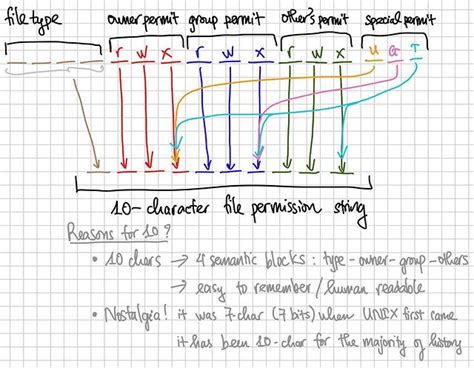 file type owner permit group permit other's permit special permit
r w x r w x r w x U G T
10-character file permission string
Reasons for 10?
• 10 chars → 4 semantic blocks : type-owner-group-others
→ easy to remember/human readable
• Nostalgia! it was 7-char (7 bits) when UNIX first came
it has been 10-char for the majority of history